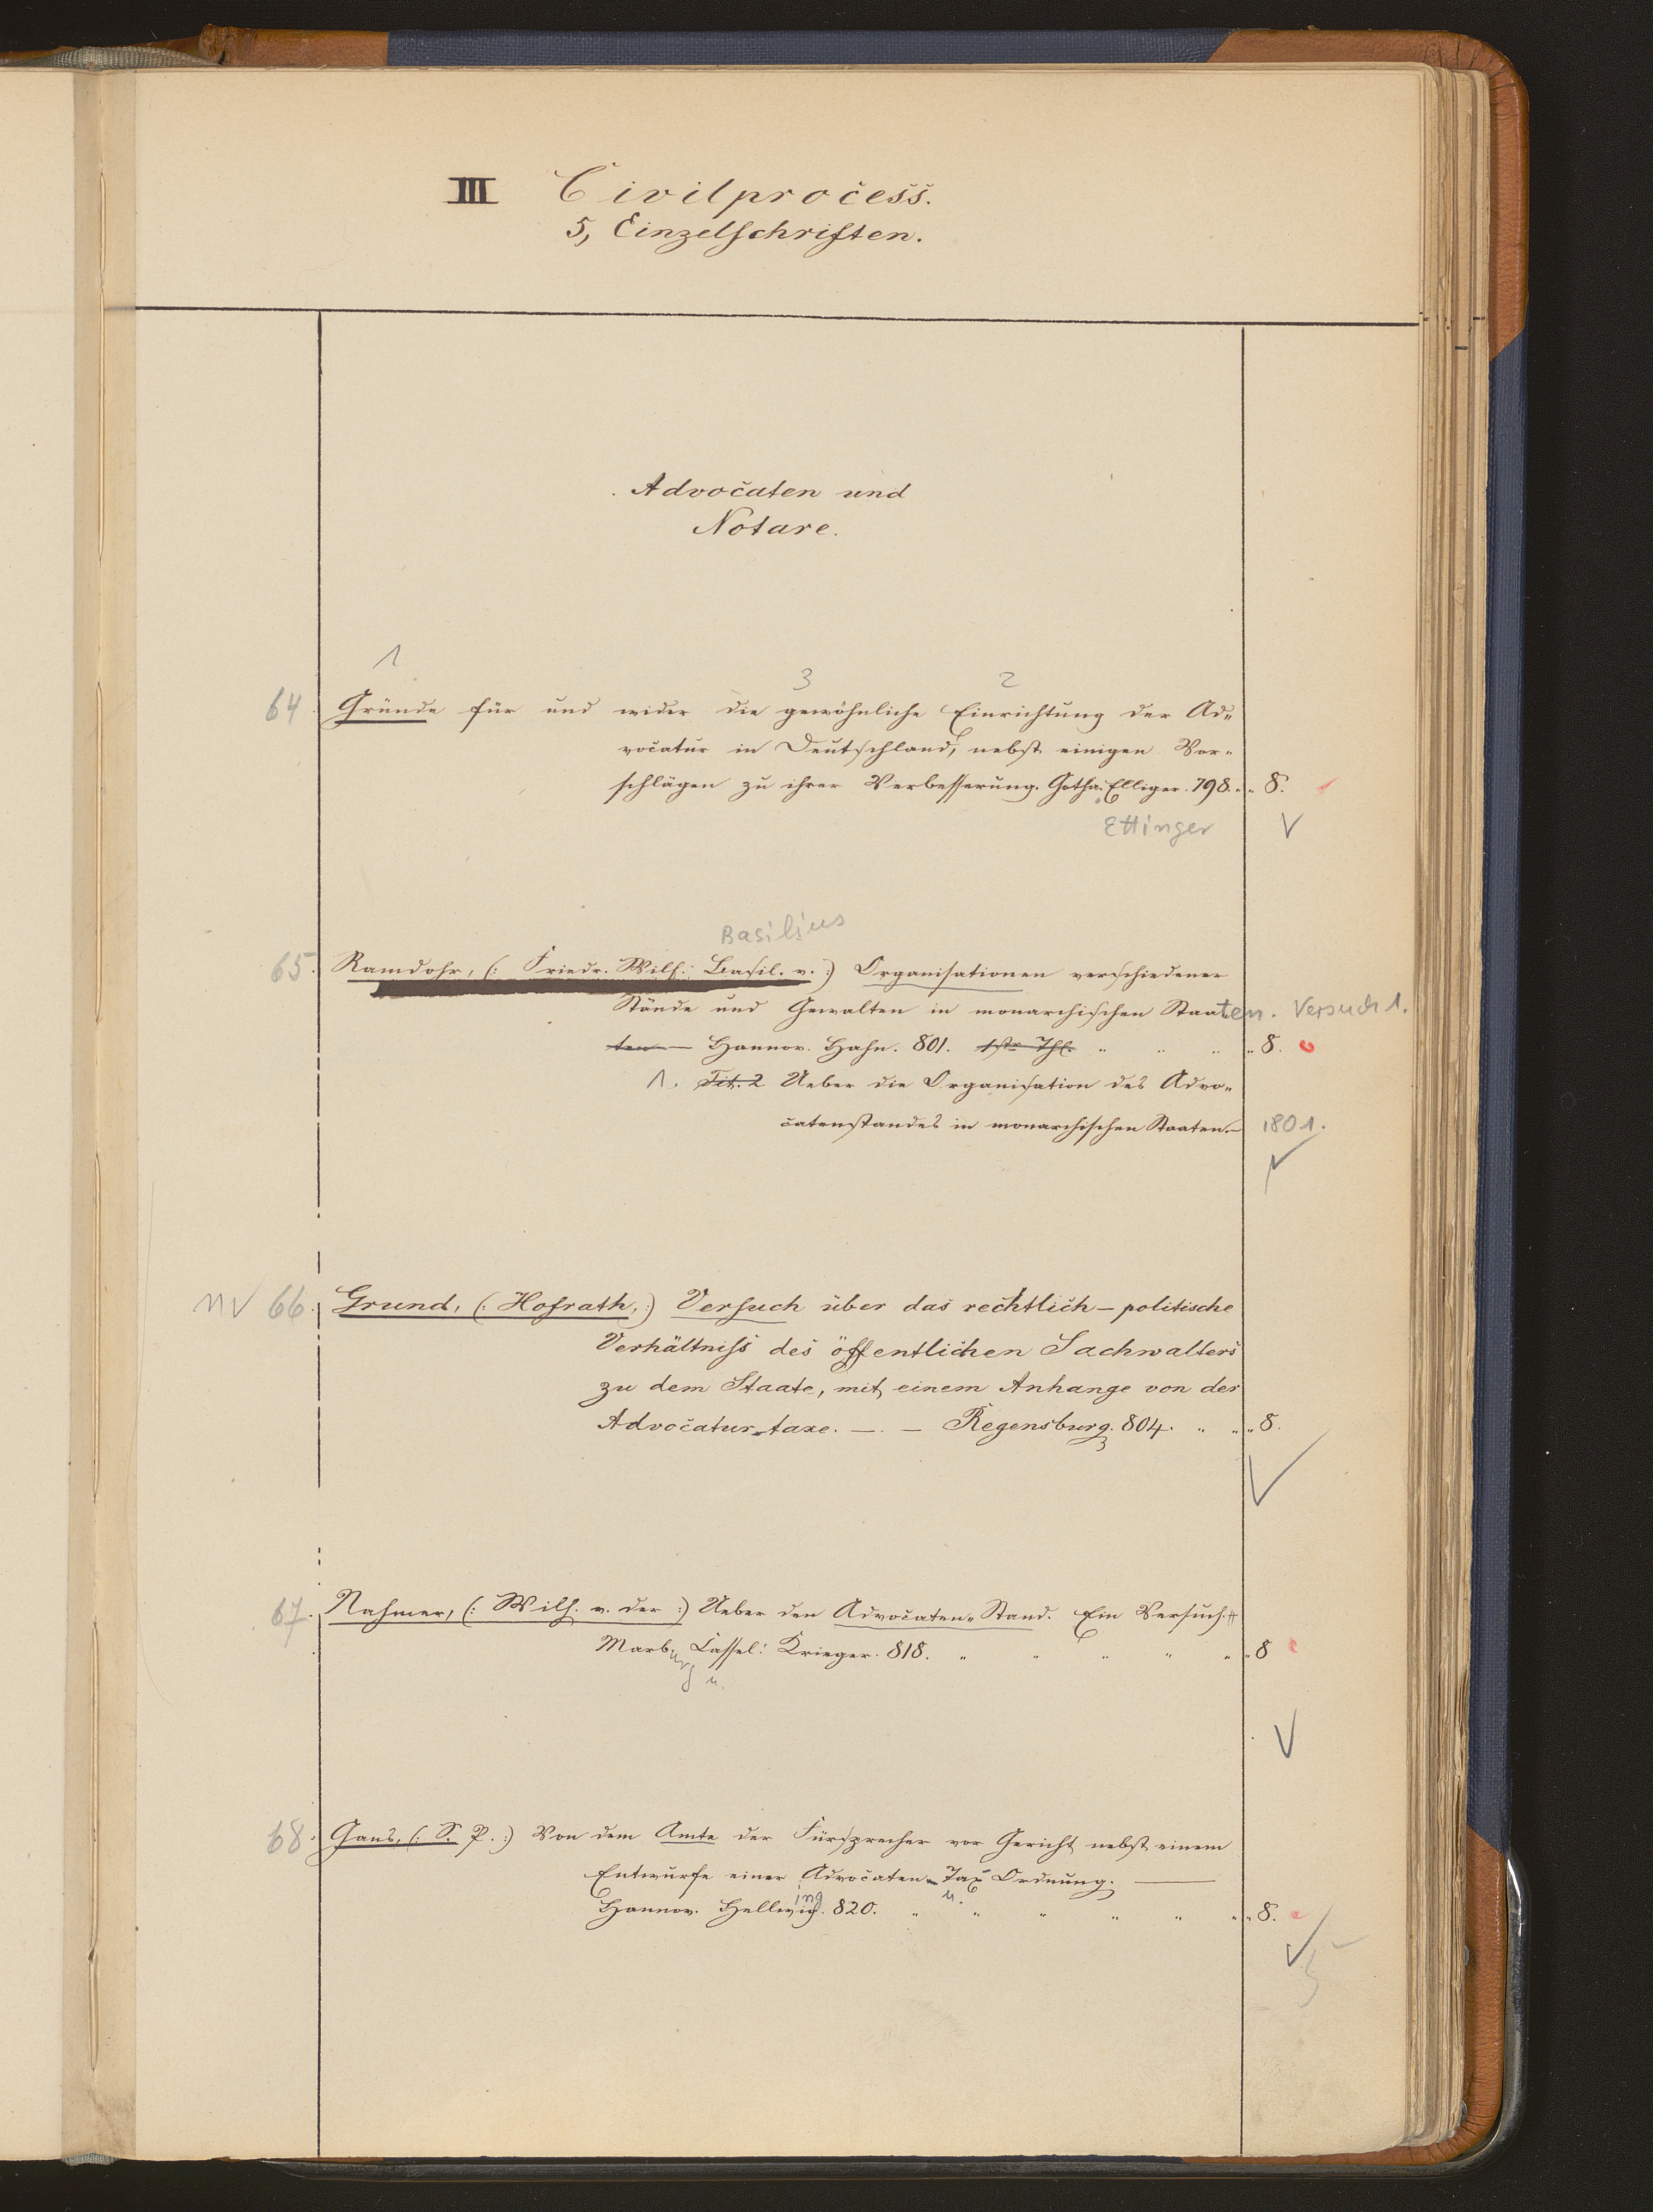 III Civilprocess.
5, Einzelschriften.
Advocaten und
Notare.
1
3 2
64. Gründe für und wider die gewöhnliche Einrichtung der Ad„
vocatur in Deutschland, nebst einigen Vor„
schlägen zu ihrer Verbesserung. Gotha. Elliger. 798. „ „ 8.
Ettinger
Basilius
65. Ramdohr, (: Friedr. Wilh. Basil. v. :) Organisationen verschiedener
Stände und Gewalten in monarchischen Staaten. Versuch 1.
ten — Hannov. Hahn. 801. 1ster Thl. „ „ „ „ 8.
1. Tit. 2 Ueber die Organisation des Advo„
catenstandes in monarchischen Staaten. — 1801.
66. Grund, (: Hofrath, :) Versuch über das rechtlich – politische
Verhältniss des öffentlichen Sachwalters
zu dem Staate, mit einem Anhange von der
Advocatur-taxe. — . — Regensburg. 804. „ „ „ 8.
67. Nahmer, (: Wilh. v. der :) Ueber den Advocaten„Stand. Ein Versuch.
Marb. Cassel: Krieger. 818. „ „ „ „ „ „ 8
urg u.
68. Gans, (: S. P. :) Von dem Amte der Fürsprecher vor Gericht nebst einem
Entwurfe einer Advocaten - Tax Ordnung. —
ing u.
Hannov. Hellwig. 820. „ „ „ „ „ „ „ 8.